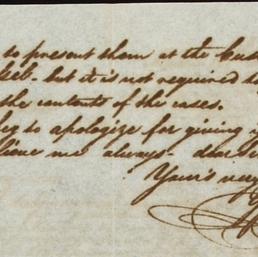 to present them at the Cus
but it is not required to
the contents of the cases.
beg to apologize for giving y
lieve me always - dear Si
Your's very